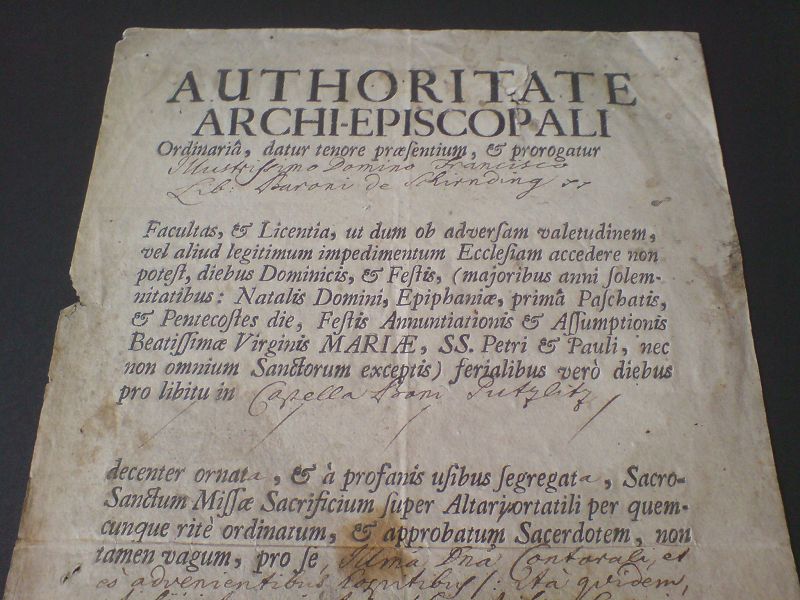 AUTHORITATE
ARCHI-EPISCOPALI
Ordinariâ, datur tenore præſentium, & prorogatur
Illustrissimo Domino Francisco
Lib: Baroni de Schirnding
Facultas, & Licentia, ut dum ob adverſam valetudinem,
vel aliud legitimum impedimentum Eccleſiam accedere non
poteſt, diebus Dominicis, & Feſtis, (majoribus anni ſolem-
nitatibus: Natalis Domini, Epiphaniæ, primâ Paſchatis,
& Pentecoſtes die, Feſtis Annuntiationis & Aſſumptionis
Beatiſſimæ Virginis MARIÆ, SS. Petri & Pauli, nec
non omnium Sanctorum exceptis) ferialibus verò diebus
pro libitu in Capella Boni Putzlitz
decenter ornata, & à profanis uſibus ſegregata, Sacro-
Sanctum Miſſæ Sacrificium ſuper Altari portatili per quem-
cunque ritè ordinatum, & approbatum Sacerdotem, non
tamen vagum, pro ſe, Illma Dna Contorali, et
advenientibus ita quidem,